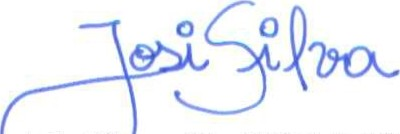 Josi Silva